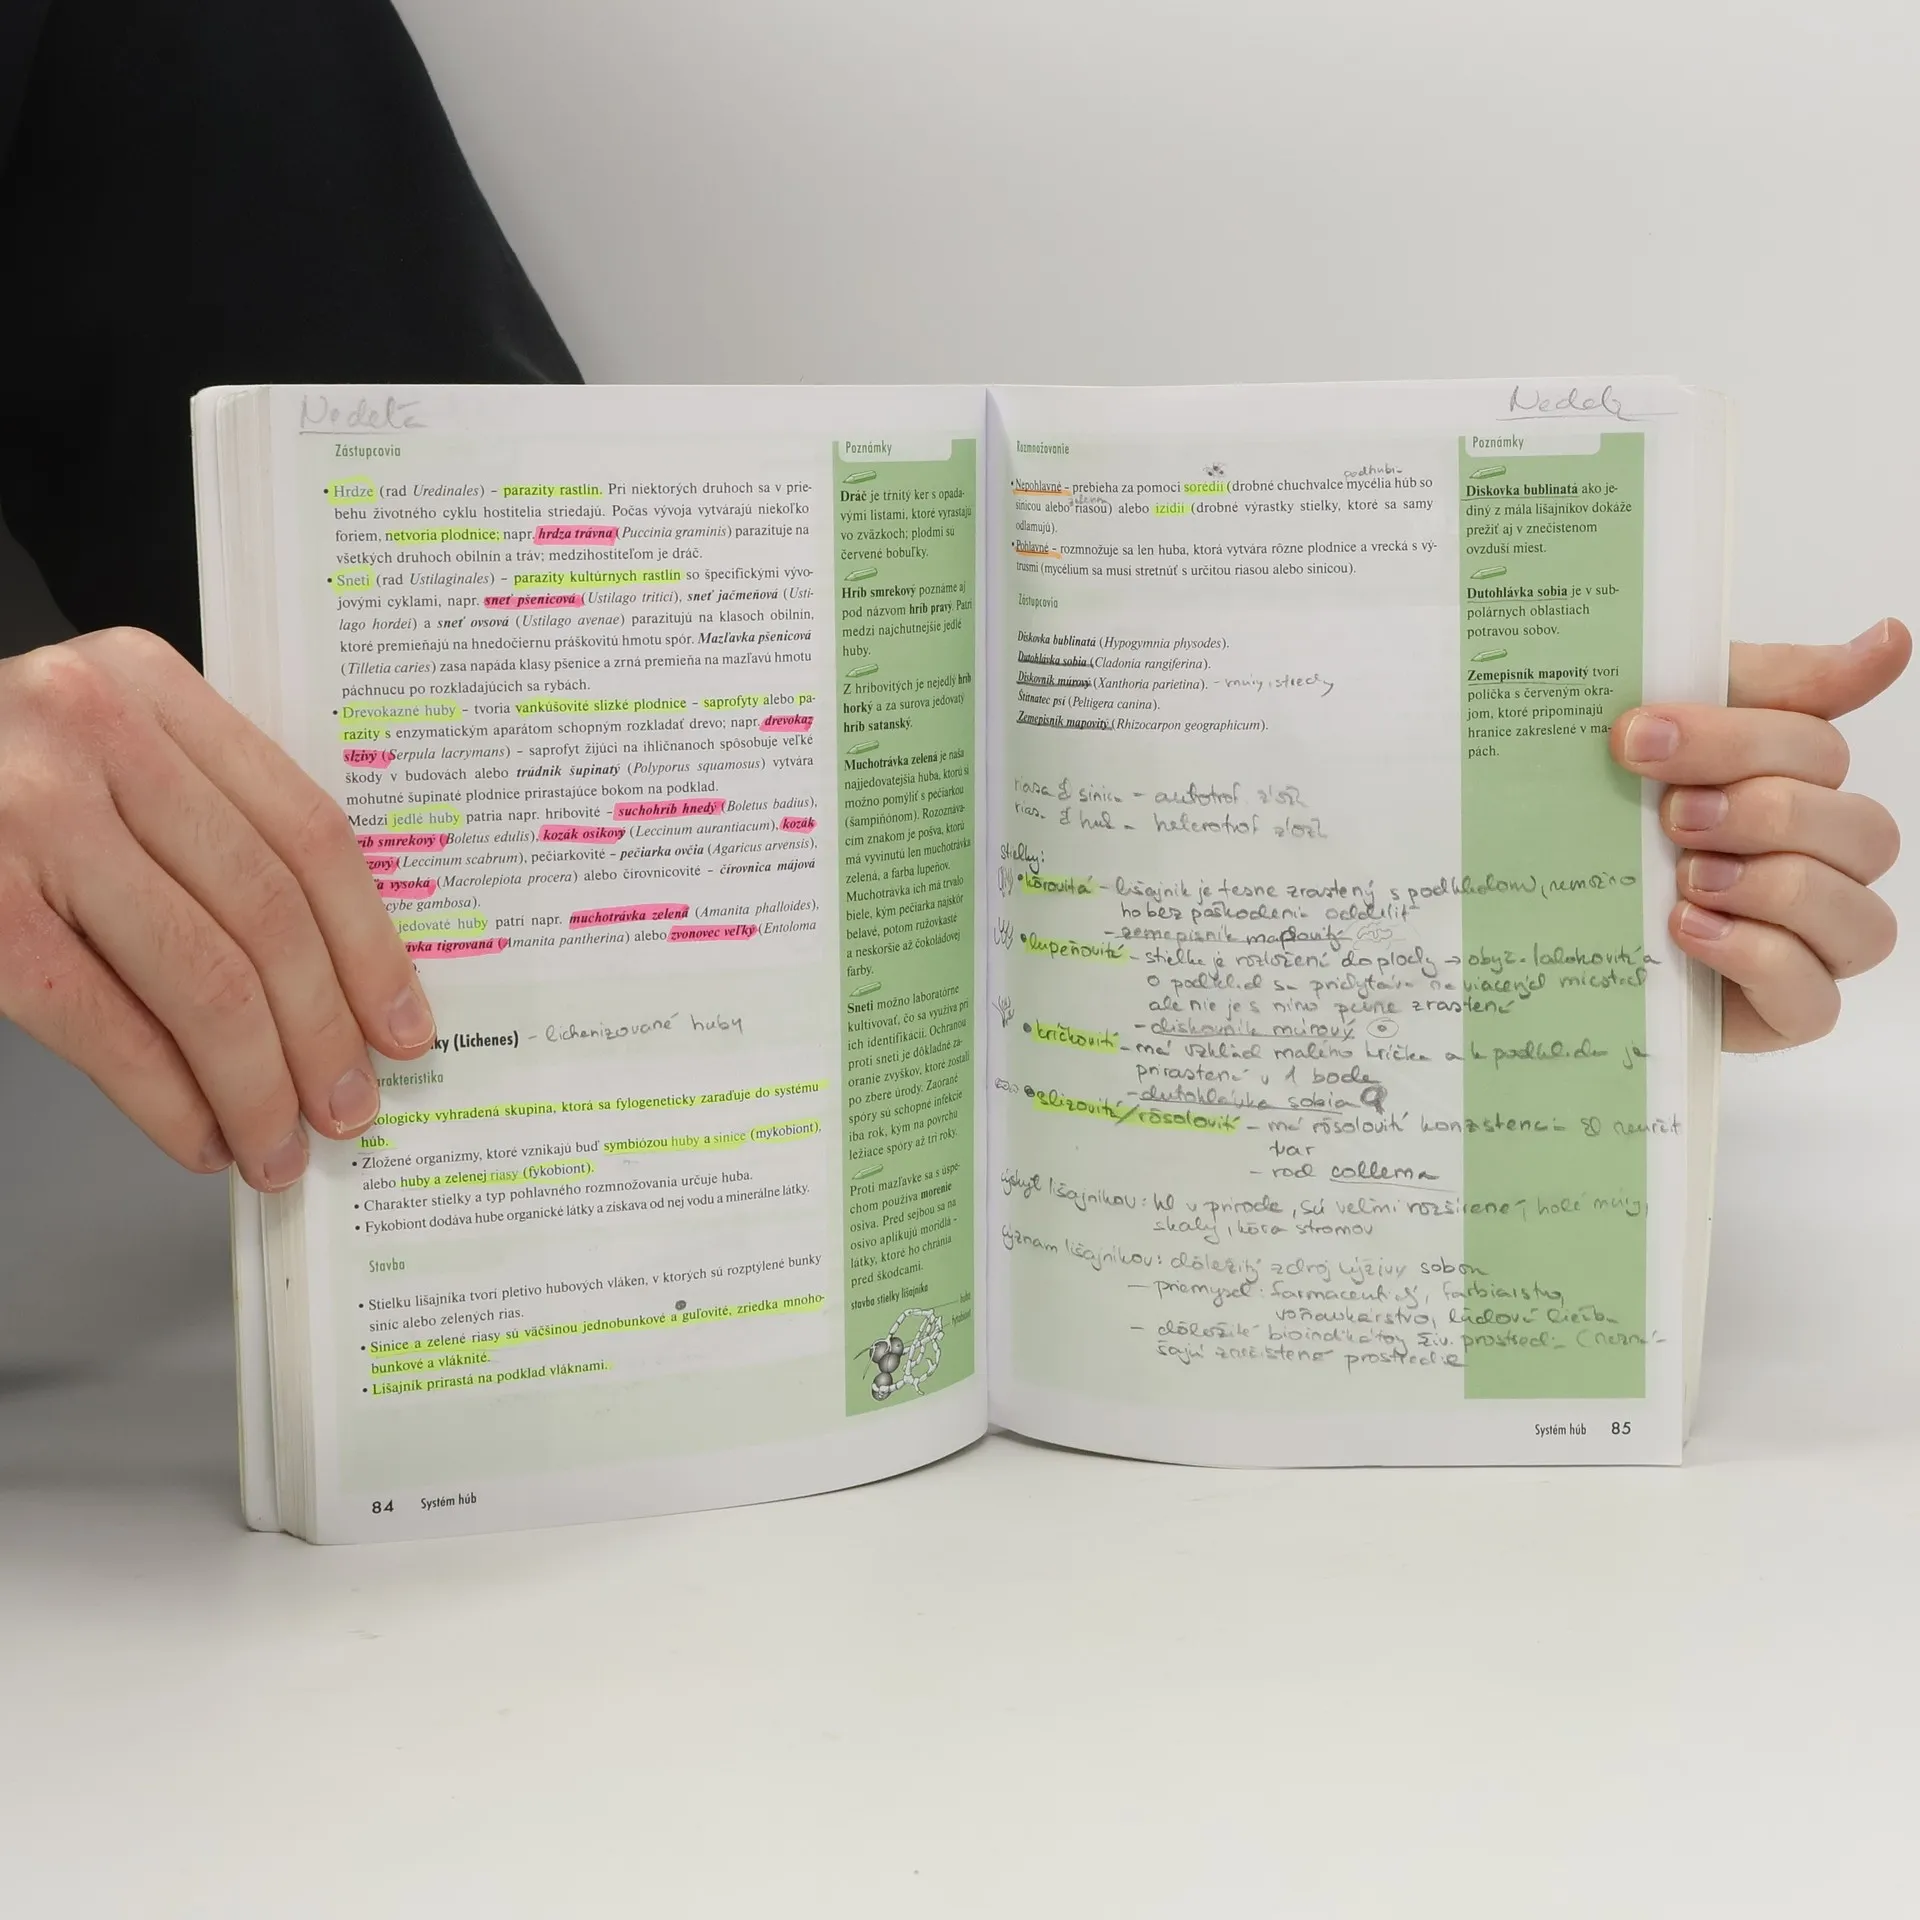 Nedeľa
Zástupcovia
• Hrdze (rad Uredinales) – parazity rastlín. Pri niektorých druhoch sa v prie-
behu životného cyklu hostitelia striedajú. Počas vývoja vytvárajú niekoľko
foriem, netvoria plodnice; napr. hrdza trávna (Puccinia graminis) parazituje na
všetkých druhoch obilnín a tráv; medzihostiteľom je dráč.
• Sneti (rad Ustilaginales) – parazity kultúrnych rastlín so špecifickými vývo-
jovými cyklami, napr. sneť pšenicová (Ustilago tritici), sneť jačmeňová (Usti-
lago hordei) a sneť ovsová (Ustilago avenae) parazitujú na klasoch obilnín,
ktoré premieňajú na hnedočiernu práškovitú hmotu spór. Mazľavka pšenicová
(Tilletia caries) zasa napáda klasy pšenice a zrná premieňa na mazľavú hmotu
páchnucu po rozkladajúcich sa rybách.
• Drevokazné huby – tvoria vankúšovité slizké plodnice – saprofyty alebo pa-
razity s enzymatickým aparátom schopným rozkladať drevo; napr. drevokaz
slzivý (Serpula lacrymans) – saprofyt žijúci na ihličnanoch spôsobuje veľké
škody v budovách alebo trúdnik šupinatý (Polyporus squamosus) vytvára
mohutné šupinaté plodnice prirastajúce bokom na podklad.
Medzi jedlé huby patria napr. hríbovité – suchohríb hnedý (Boletus badius),
ríb smrekový (Boletus edulis), kozák osikový (Leccinum aurantiacum), kozák
zový (Leccinum scabrum), pečiarkovité – pečiarka ovčia (Agaricus arvensis),
a vysoká (Macrolepiota procera) alebo čírovnicovité – čírovnica májová
cybe gambosa).
jedovaté huby patrí napr. muchotrávka zelená (Amanita phalloides),
ávka tigrovaná (Amanita pantherina) alebo zvonovec veľký (Entoloma
).
ky (Lichenes) – lichenizované huby
arakteristika
kologicky vyhradená skupina, ktorá sa fylogeneticky zaraďuje do systému
húb.
• Zložené organizmy, ktoré vznikajú buď symbiózou huby a sinice (mykobiont),
alebo huby a zelenej riasy (fykobiont).
• Charakter stielky a typ pohlavného rozmnožovania určuje huba.
• Fykobiont dodáva hube organické látky a získava od nej vodu a minerálne látky.
Stavba
• Stielku lišajníka tvorí pletivo hubových vláken, v ktorých sú rozptýlené bunky
siníc alebo zelených rias.
• Sinice a zelené riasy sú väčšinou jednobunkové a guľovité, zriedka mnoho-
bunkové a vláknité.
• Lišajník prirastá na podklad vláknami.
84 Systém húb
Poznámky
Dráč je tŕnitý ker s opada-
vými listami, ktoré vyrastajú
vo zväzkoch; plodmi sú
červené bobuľky.
Hríb smrekový poznáme aj
pod názvom hríb pravý. Patrí
medzi najchutnejšie jedlé
huby.
Z hríbovitých je nejedlý hríb
horký a za surova jedovatý
hríb satanský.
Muchotrávka zelená je naša
najjedovatejšia huba, ktorú si
možno pomýliť s pečiarkou
(šampiňónom). Rozoznáva-
cím znakom je pošva, ktorú
má vyvinutú len muchotrávka
zelená, a farba lupeňov.
Muchotrávka ich má trvalo
biele, kým pečiarka najskôr
belavé, potom ružovkasté
a neskoršie až čokoládovej
farby.
Sneti možno laboratórne
kultivovať, čo sa využíva pri
ich identifikácii. Ochranou
proti sneti je dôkladné za-
oranie zvyškov, ktoré zostali
po zbere úrody. Zaorané
spóry sú schopné infekcie
iba rok, kým na povrchu
ležiace spóry až tri roky.
Proti mazľavke sa s úspe-
chom používa morenie
osiva. Pred sejbou sa na
osivo aplikujú moridlá -
látky, ktoré ho chránia
pred škodcami.
stavba stielky lišajníka
huba
fykobiont
Rozmnožovanie
podhubi-
• Nepohlavné – prebieha za pomoci sorédií (drobné chuchvalce mycélia húb so
zelenou
sinicou alebo riasou) alebo izídií (drobné výrastky stielky, ktoré sa samy
odlamujú).
• Pohlavné – rozmnožuje sa len huba, ktorá vytvára rôzne plodnice a vrecká s vý-
trusmi (mycélium sa musí stretnúť s určitou riasou alebo sinicou).
Zástupcovia
Diskovka bublinatá (Hypogymnia physodes).
Dutohlávka sobia (Cladonia rangiferina).
Diskovník múrový (Xanthoria parietina). – múry, strechy
Štítnatec psí (Peltigera canina).
Zemepisník mapovitý (Rhizocarpon geographicum).
stielky:
• kôrovitá – lišajník je tesne zrastený s podkladom, nemožno
ho bez poškodenia oddeliť
– zemepisník mapovitý
• lupeňovitá – stielka je rozložená do plochy → obyč. laločovitá a
o podklad sa pridŕtáva na viacerých miestach
ale nie je s nimo pevne zrastená
– diskovník múrový
• kríčkovitá – má vzhľad malého kríčka a k podkladu je
prirastená v 1 bode
– dutohlávka sobia
• slizovitá / rôsolovitá – má rôsolovitú konzistenciu so neurčit
tvar
– rod collema
výskyt lišajníkov: v prírode, sú veľmi rozšírené, holé múry,
skaly, kôra stromov
význam lišajníkov: dôležitý zdroj výživy sobov
– priemysel: farmaceutický, farbiarstvo,
voňavkárstvo, ľudová liečba
– dôležité bioindikátory živ. prostredia (nezná-
šajú znečistené prostredie
Poznámky
Diskovka bublinatá ako je-
diný z mála lišajníkov dokáže
prežiť aj v znečistenom
ovzduší miest.
Dutohlávka sobia je v sub-
polárnych oblastiach
potravou sobov.
Zemepisník mapovitý tvorí
políčka s červeným okra-
jom, ktoré pripomínajú
hranice zakreslené v ma-
pách.
Systém húb 85